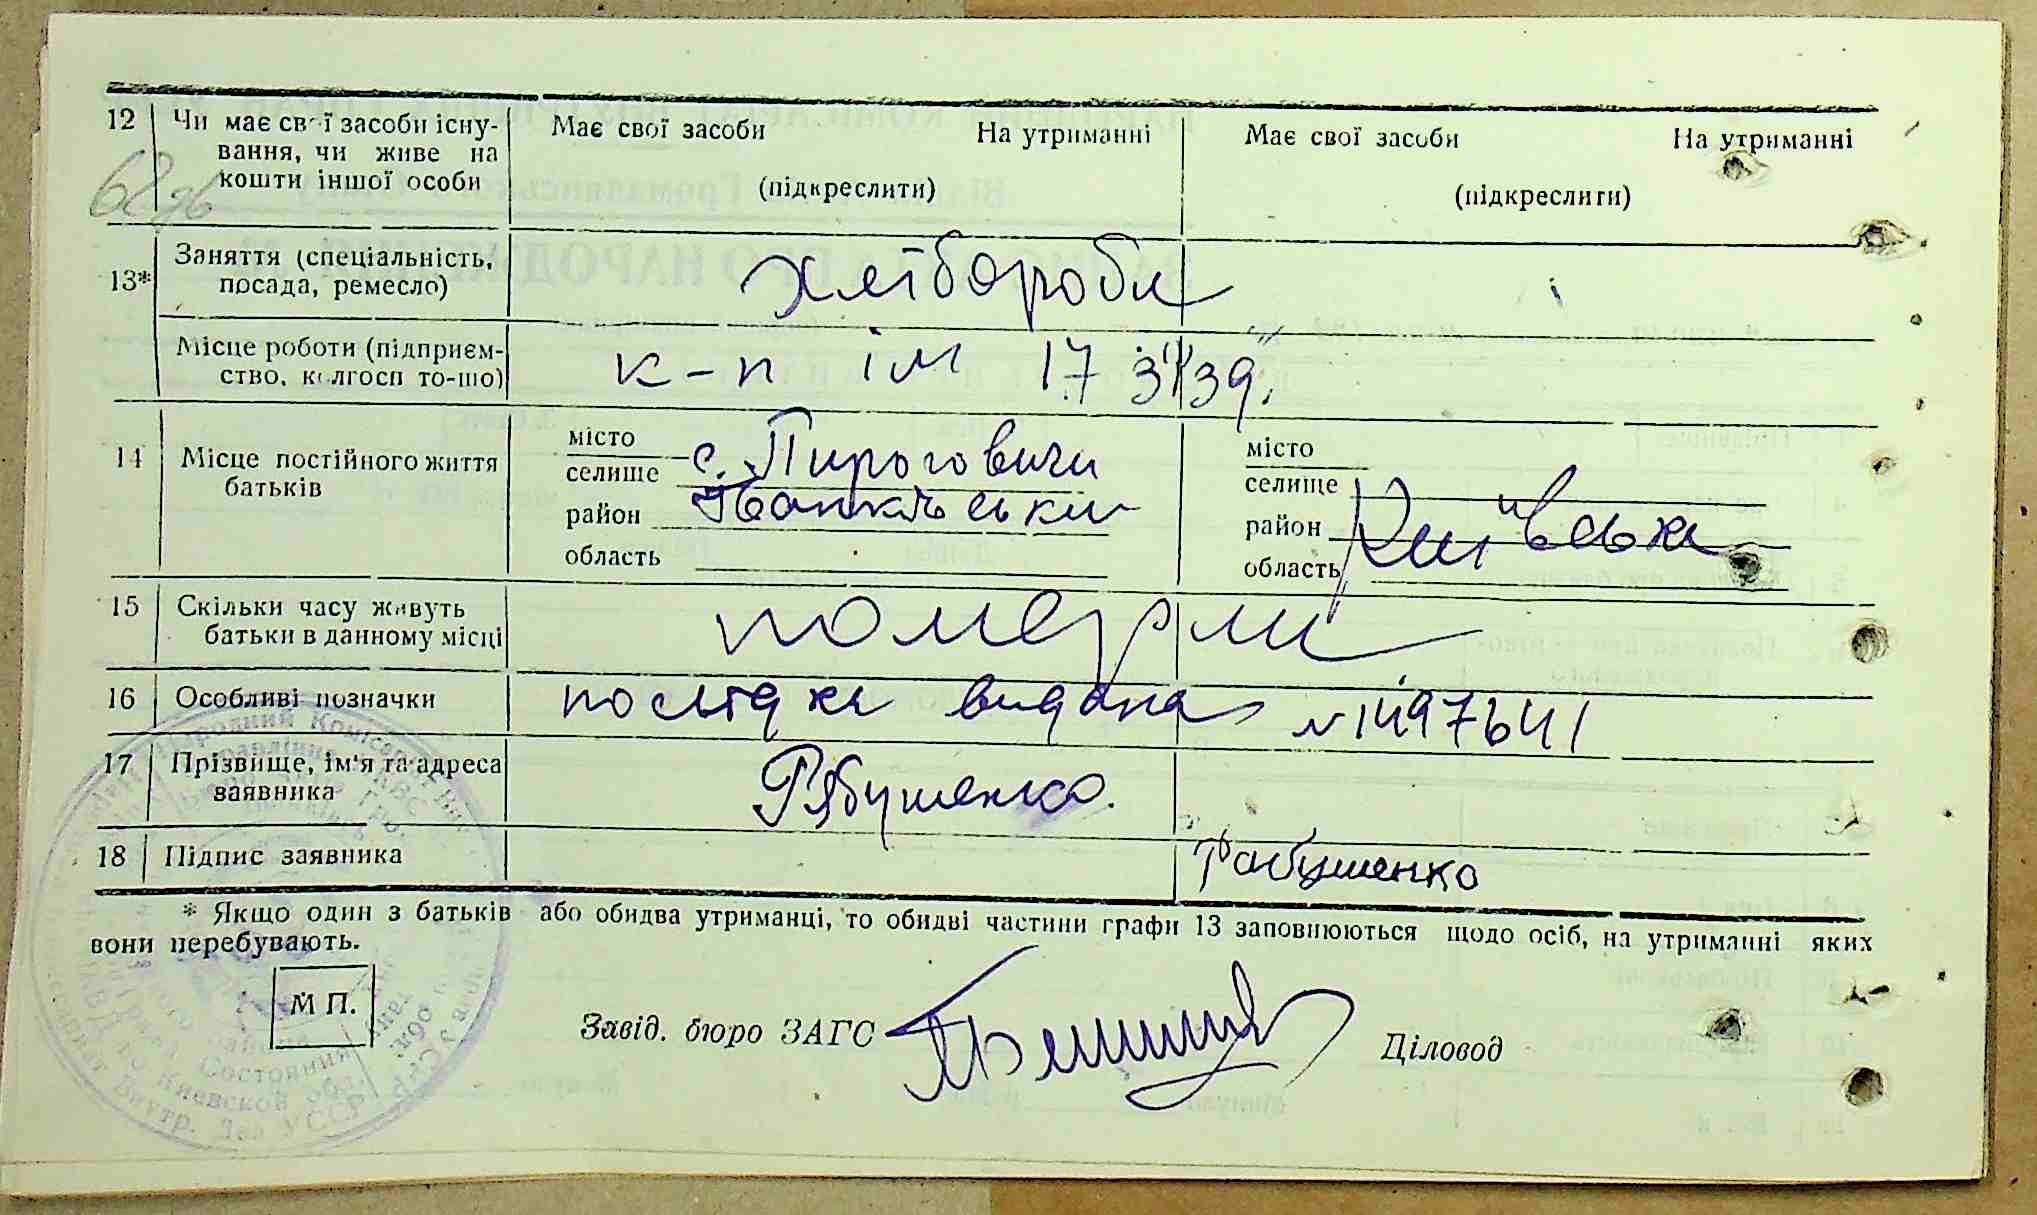 12 Чи має свої засоби існу- Має свої засоби На утриманні Має свої засоби На утриманні
вання, чи живе на
кошти іншої особи (підкреслити) (підкреслити)
13* Заняття (спеціальність, хлібороби
посада, ремесло)
Місце роботи (підприєм- к-п ім 17
ство, колгосп то-що)
14 Місце постійного життя батьків місто місто
селище с. Пироговичи селище
район Іванківський район Київська
область область
15 Скільки часу живуть померли
батьки в данному місці
16 Особливі позначки послідка видана № 1497641
17 Прізвище, ім'я та адреса Рябушенко.
заявника
18 Підпис заявника Рабушенко
* Якщо один з батьків або обидва утриманці, то обидві частини графи 13 заповнюються щодо осіб, на утриманні яких
вони перебувають.
М П.
Завід. бюро ЗАГС Діловод